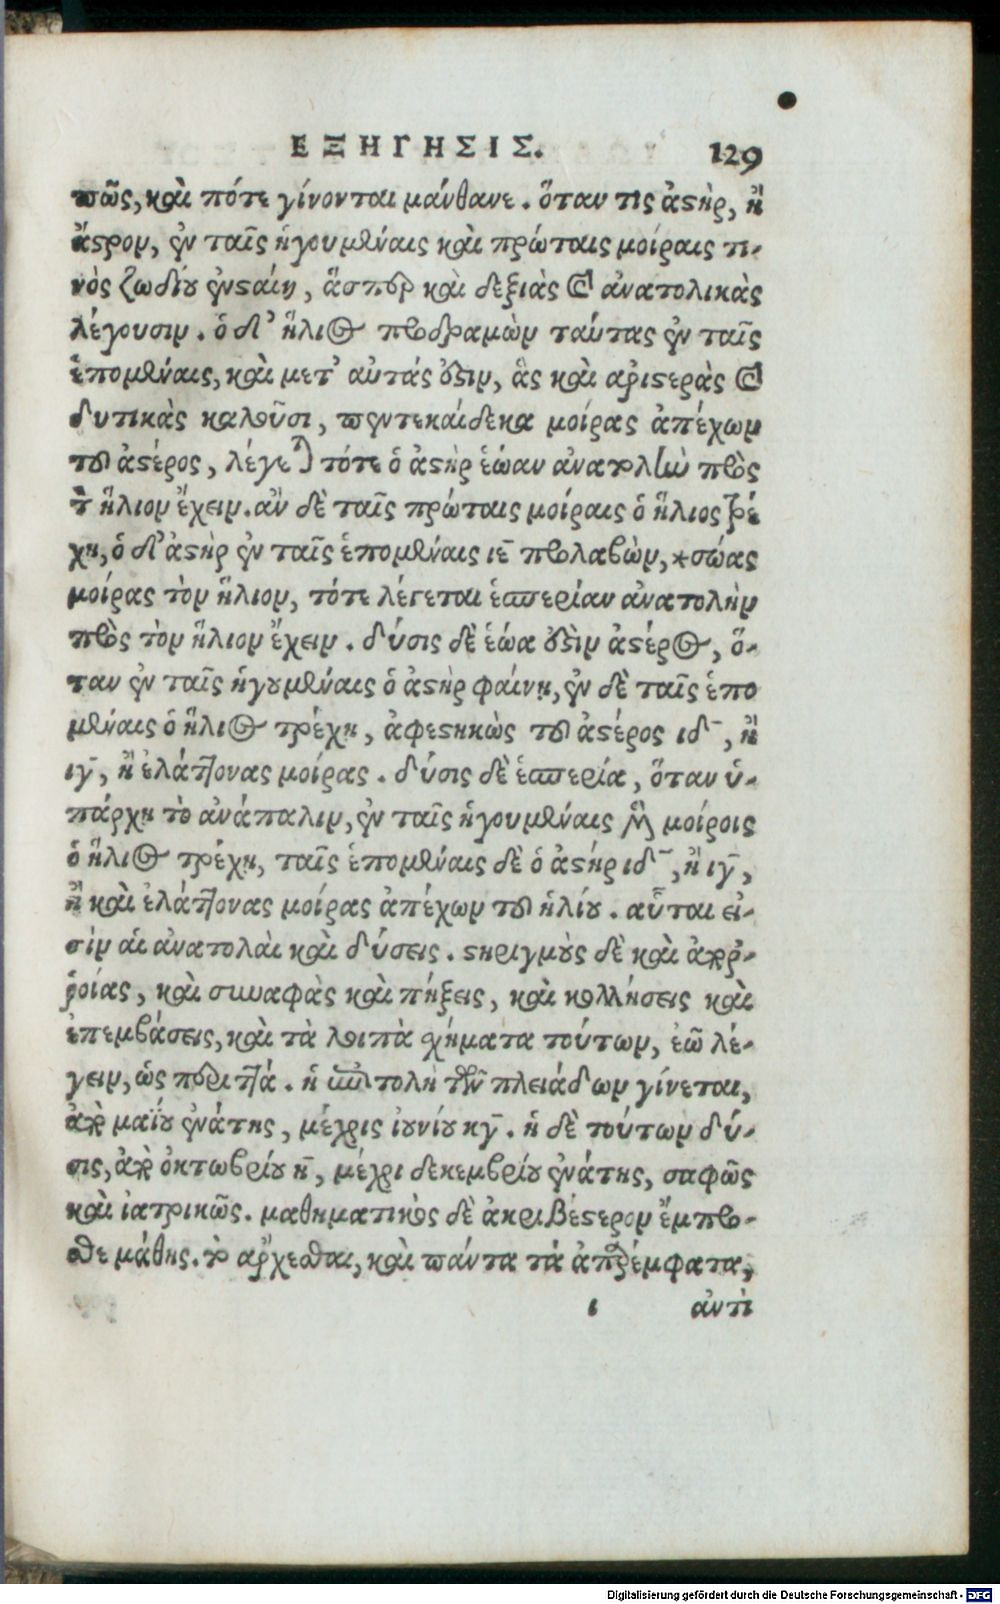 ΕΞΗΓΗΣΙΣ. 129
πῶς, καὶ πότε γίνονται μάνθανε. ὅταν τις ἀστὴρ, ἢ
ἄστρον, ἐν ταῖς ἡγουμέναις καὶ πρώταις μοίραις τι-
νὸς ζωδίου ἐνσταίη, ἅσπερ καὶ δεξιὰς καὶ ἀνατολικὰς
λέγουσιν. ὁ δ' ἥλιος προδραμὼν ταύτας ἐν ταῖς
ἑπομέναις, καὶ μετ' αὐτάς ἐστιν, ἃς καὶ ἀριστερὰς καὶ
δυτικὰς καλοῦσι, πεντεκαίδεκα μοίρας ἀπέχων
τοῦ ἀστέρος, λέγεται τότε ὁ ἀστὴρ ἑώαν ἀνατολὴν πρὸς
τὸν ἥλιον ἔχειν. ἂν δὲ ταῖς πρώταις μοίραις ὁ ἥλιος τρέ
χῃ, ὁ δ' ἀστὴρ ἐν ταῖς ἑπομέναις ιε̄ προλαβὼν, *σώας
μοίρας τὸν ἥλιον, τότε λέγεται ἑσπερίαν ἀνατολὴν
πρὸς τὸν ἥλιον ἔχειν. δύσις δὲ ἑώα ἐστὶν ἀστέρος, ὅ-
ταν ἐν ταῖς ἡγουμέναις ὁ ἀστὴρ φαίνῃ, ἐν δὲ ταῖς ἑπο
μέναις ὁ ἥλιος τρέχῃ, ἀφεστηκὼς τοῦ ἀστέρος ιδ̄, ἢ
ιγ̄, ἢ ἐλάττονας μοίρας. δύσις δὲ ἑσπερία, ὅταν ὑ-
πάρχῃ τὸ ἀνάπαλιν, ἐν ταῖς ἡγουμέναις μὲν μοίροις
ὁ ἥλιος τρέχῃ, ταῖς ἑπομέναις δὲ ὁ ἀστήρ ιδ̄, ἢ ιγ̄,
ἢ καὶ ἐλάττονας μοίρας ἀπέχων τοῦ ἡλίου. αὗται εἰ-
σὶν αἱ ἀνατολαὶ καὶ δύσεις. στηριγμοὺς δὲ καὶ ἀποῤ-
ῥοίας, καὶ συναφὰς καὶ πήξεις, καὶ κολλήσεις καὶ
ἐπεμβάσεις, καὶ τὰ λοιπὰ σχήματα τούτων, ἐῶ λέ-
γειν, ὡς περιττά. ἡ ἐπιτολὴ τῶν πλειάδων γίνεται,
ἀπὸ μαΐου ἐνάτης, μέχρις ἰουνίου κγ̄. ἡ δὲ τούτων δύ-
σις, ἀπὸ ὀκτωβρίου η̄, μέχρι δεκεμβρίου ἐνάτης, σαφῶς
καὶ ἰατρικῶς. μαθηματικὸς δὲ ἀκριβέστερον ἔμπρο-
σθε μάθῃς. τὸ ἄρχεσθαι, καὶ πάντα τά ἀπαρέμφατα,
ι ἀντὶ
Digitalisierung gefördert durch die Deutsche Forschungsgemeinschaft - DFG